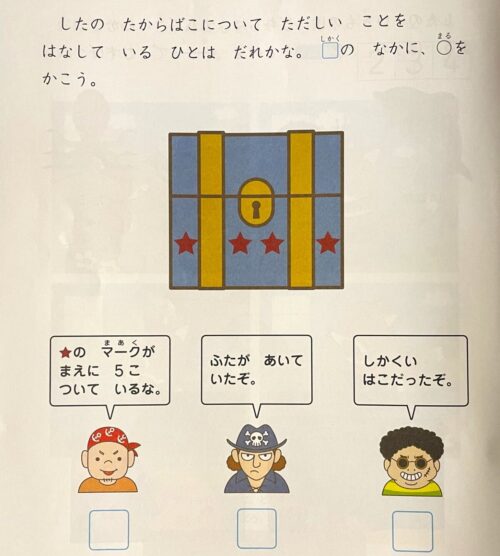 したの たからばこについて ただしい ことを
はなして いる ひとは だれかな。□の なかに、○を
かこう。
★の マークが
まえに 5こ
ついて いるな。
ふたが あいて
いたぞ。
しかくい
はこだったぞ。